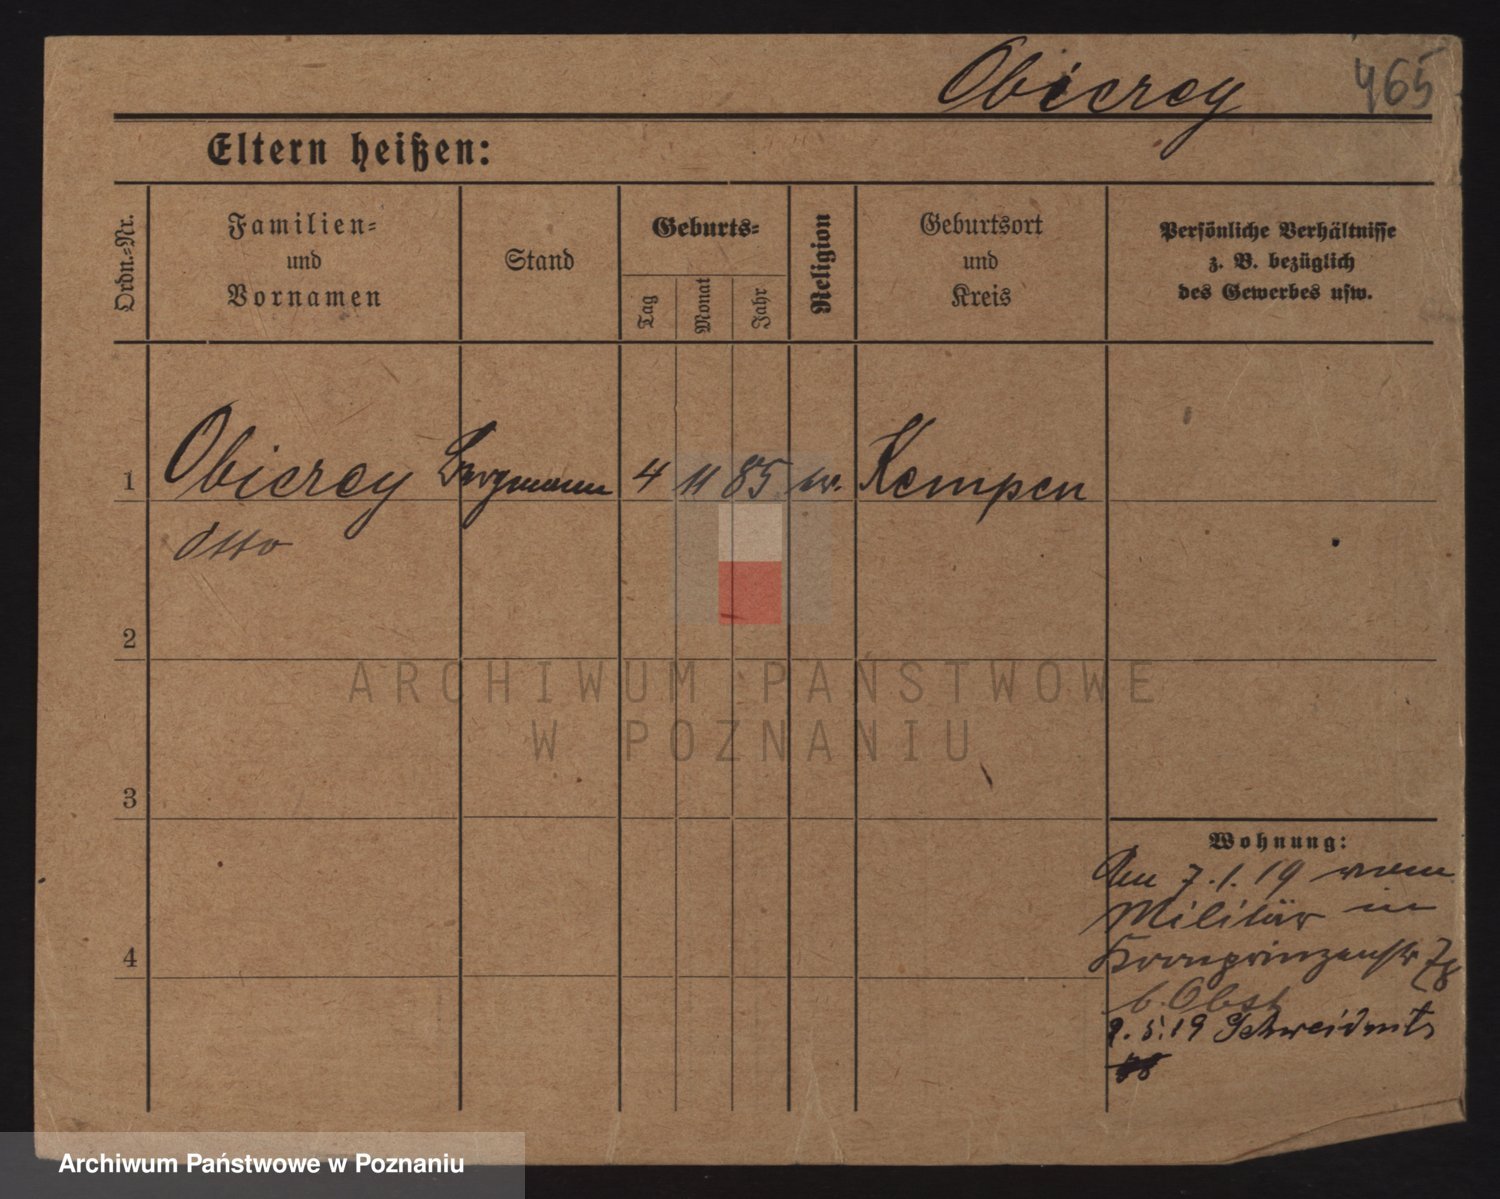 Obierey 465
Eltern heißen:
Ordn.=Nr.
Familien=
und
Vornamen
Stand
Geburts=
Tag
Monat
Jahr
Religion
Geburtsort
und
Kreis
Persönliche Verhältnisse
z. B. bezüglich
des Gewerbes usw.
1 Obierey Bergmann 4 11 85 ev. Kempen
Otto
2
3
4
Wohnung:
Am 7.1.19 vom
Militär in
Kronprinzenstr
b. Obst
9.5.19
ARCHIWUM PAŃSTWOWE
W POZNANIU
Archiwum Państwowe w Poznaniu